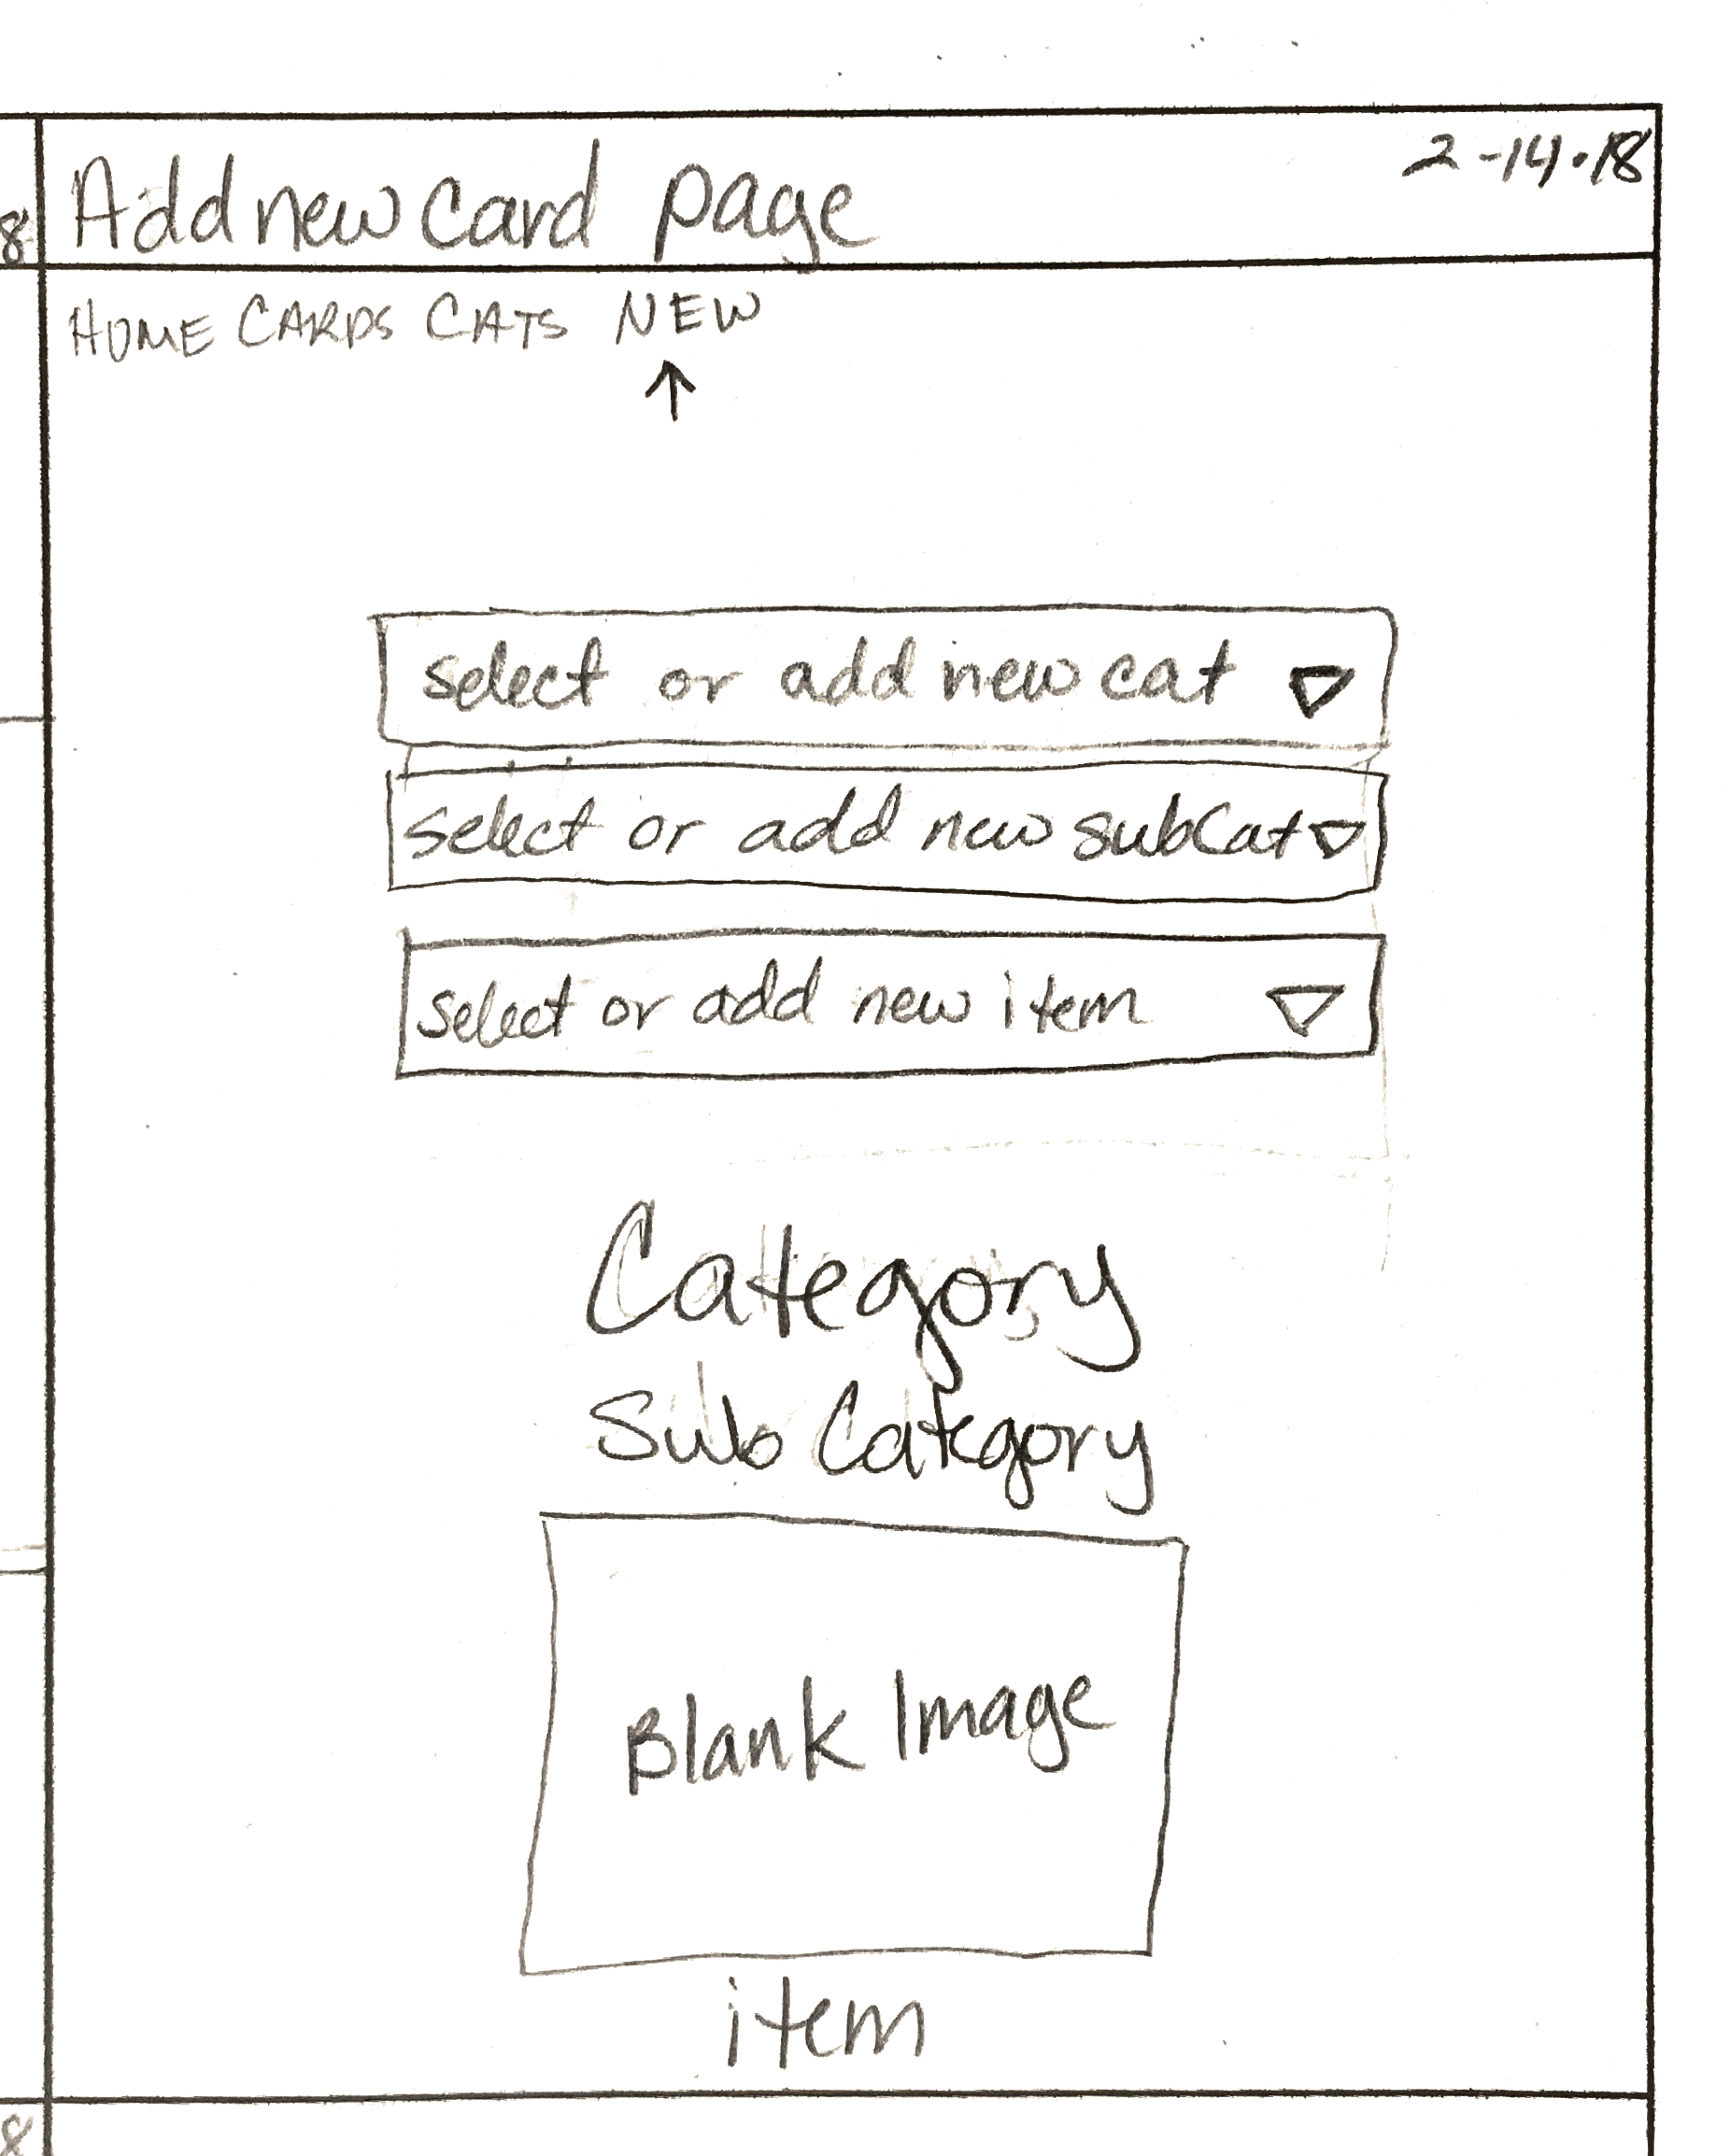 8 Add new card page 2-14-18
HOME CARDS CATS NEW
select or add new cat
select or add new subCat
select or add new item
Category
Sub Category
Blank Image
item
8